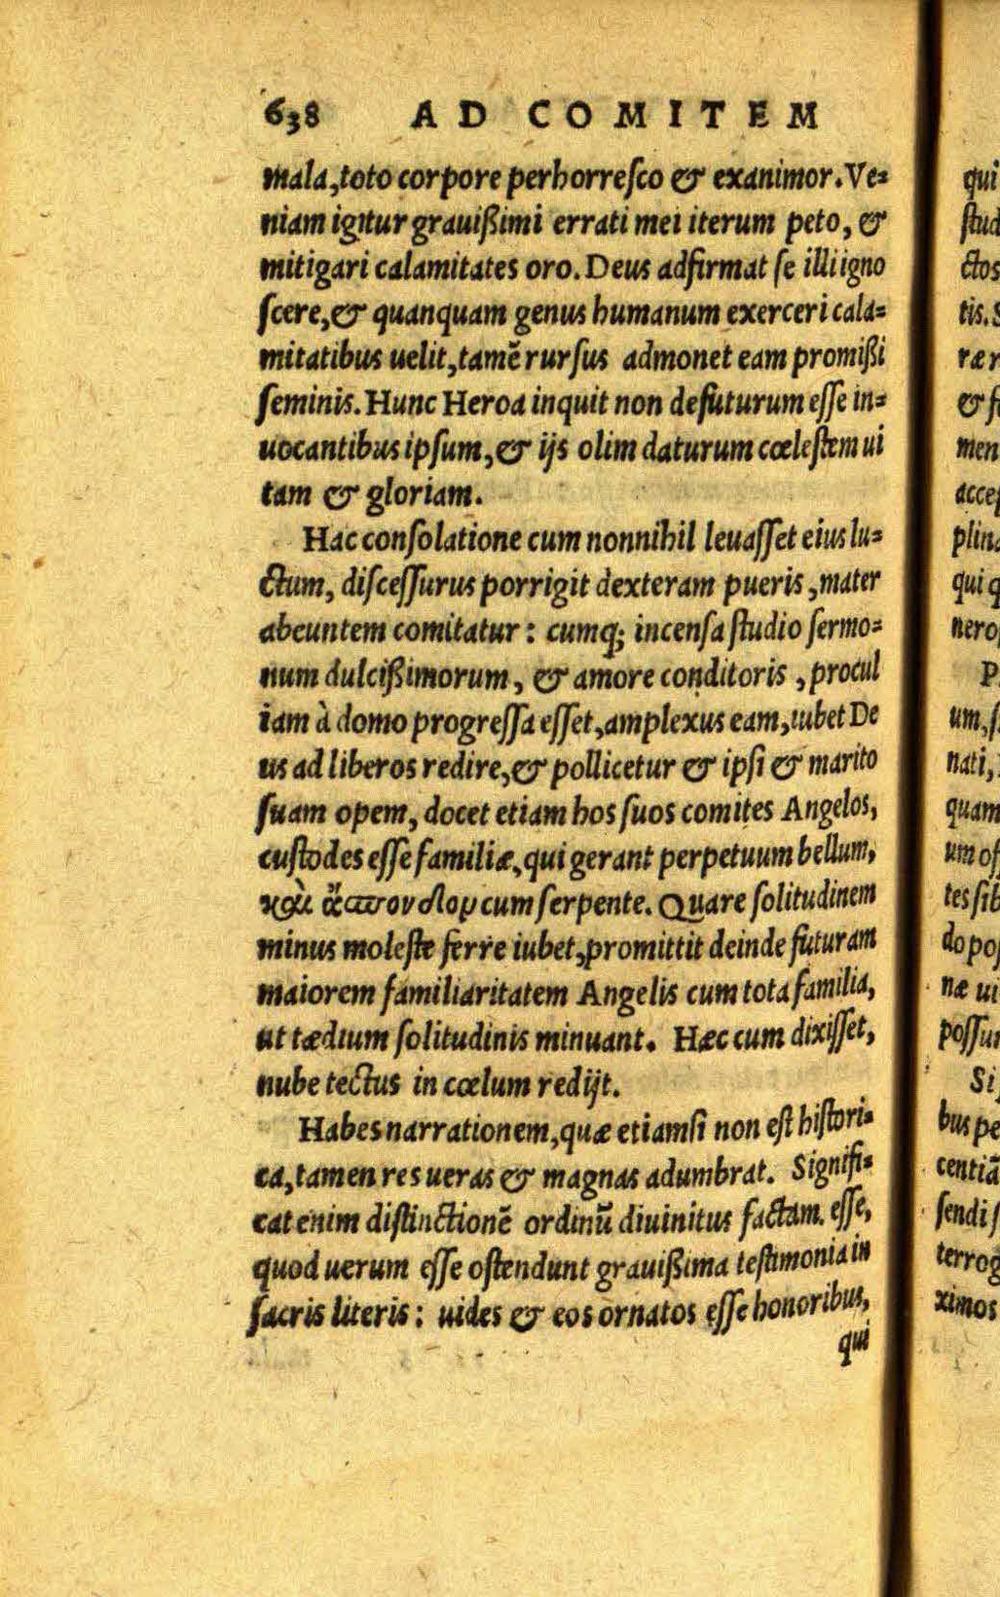 638 AD COMITEM
mala, toto corpore perhorreſco & exanimor. Ve=
niam igitur grauißimi errati mei iterum peto, &
mitigari calamitates oro. Deus adfirmat ſe illi igno
ſcere, & quanquam genus humanum exerceri cala=
mitatibus uelit, tamẽ rurſus admonet eam promißi
ſeminis. Hunc Heroa inquit non defuturum eſſe in=
uocantibus ipſum, & ijs olim daturum cœleſtem ui
tam & gloriam.
Hac conſolatione cum nonnihil leuaſſet eius lu=
ctum, diſceſſurus porrigit dexteram pueris, mater
abeuntem comitatur: cumq; incenſa ſtudio ſermo=
num dulcißimorum, & amore conditoris, procul
iam à domo progreſſa eſſet, amplexus eam, iubet De
us ad liberos redire, & pollicetur & ipſi & marito
ſuam opem, docet etiam hos ſuos comites Angelos,
cuſtodes eſſe familiæ, qui gerant perpetuum bellum,
καὶ ἄσπονδον cum ſerpente. Quare ſolitudinem
minus moleſte ferre iubet, promittit deinde futuram
maiorem familiaritatem Angelis cum tota familia,
ut tædium ſolitudinis minuant. Hæc cum dixiſſet,
nube tectus in cœlum redijt.
Habes narrationem, quæ etiamſi non eſt hiſtori=
ca, tamen res ueras & magnas adumbrat. Signifi=
cat enim diſtinctionẽ ordinũ diuinitus factam. eſſe,
quod uerum eſſe oſtendunt grauißima teſtimonia in
ſacris literis: uides & eos ornatos eſſe honoribus,
qui
qui
ſtud
ctos
tis. S
ræ r
& ſi
men
accep
plina
qui q
nero
P
um, ſ
nati,
quam
um oſ
tes ſib
do poſ
næ ui
poſſun
Si
bus pe
centiã
ſendi ſ
terrog
ximos